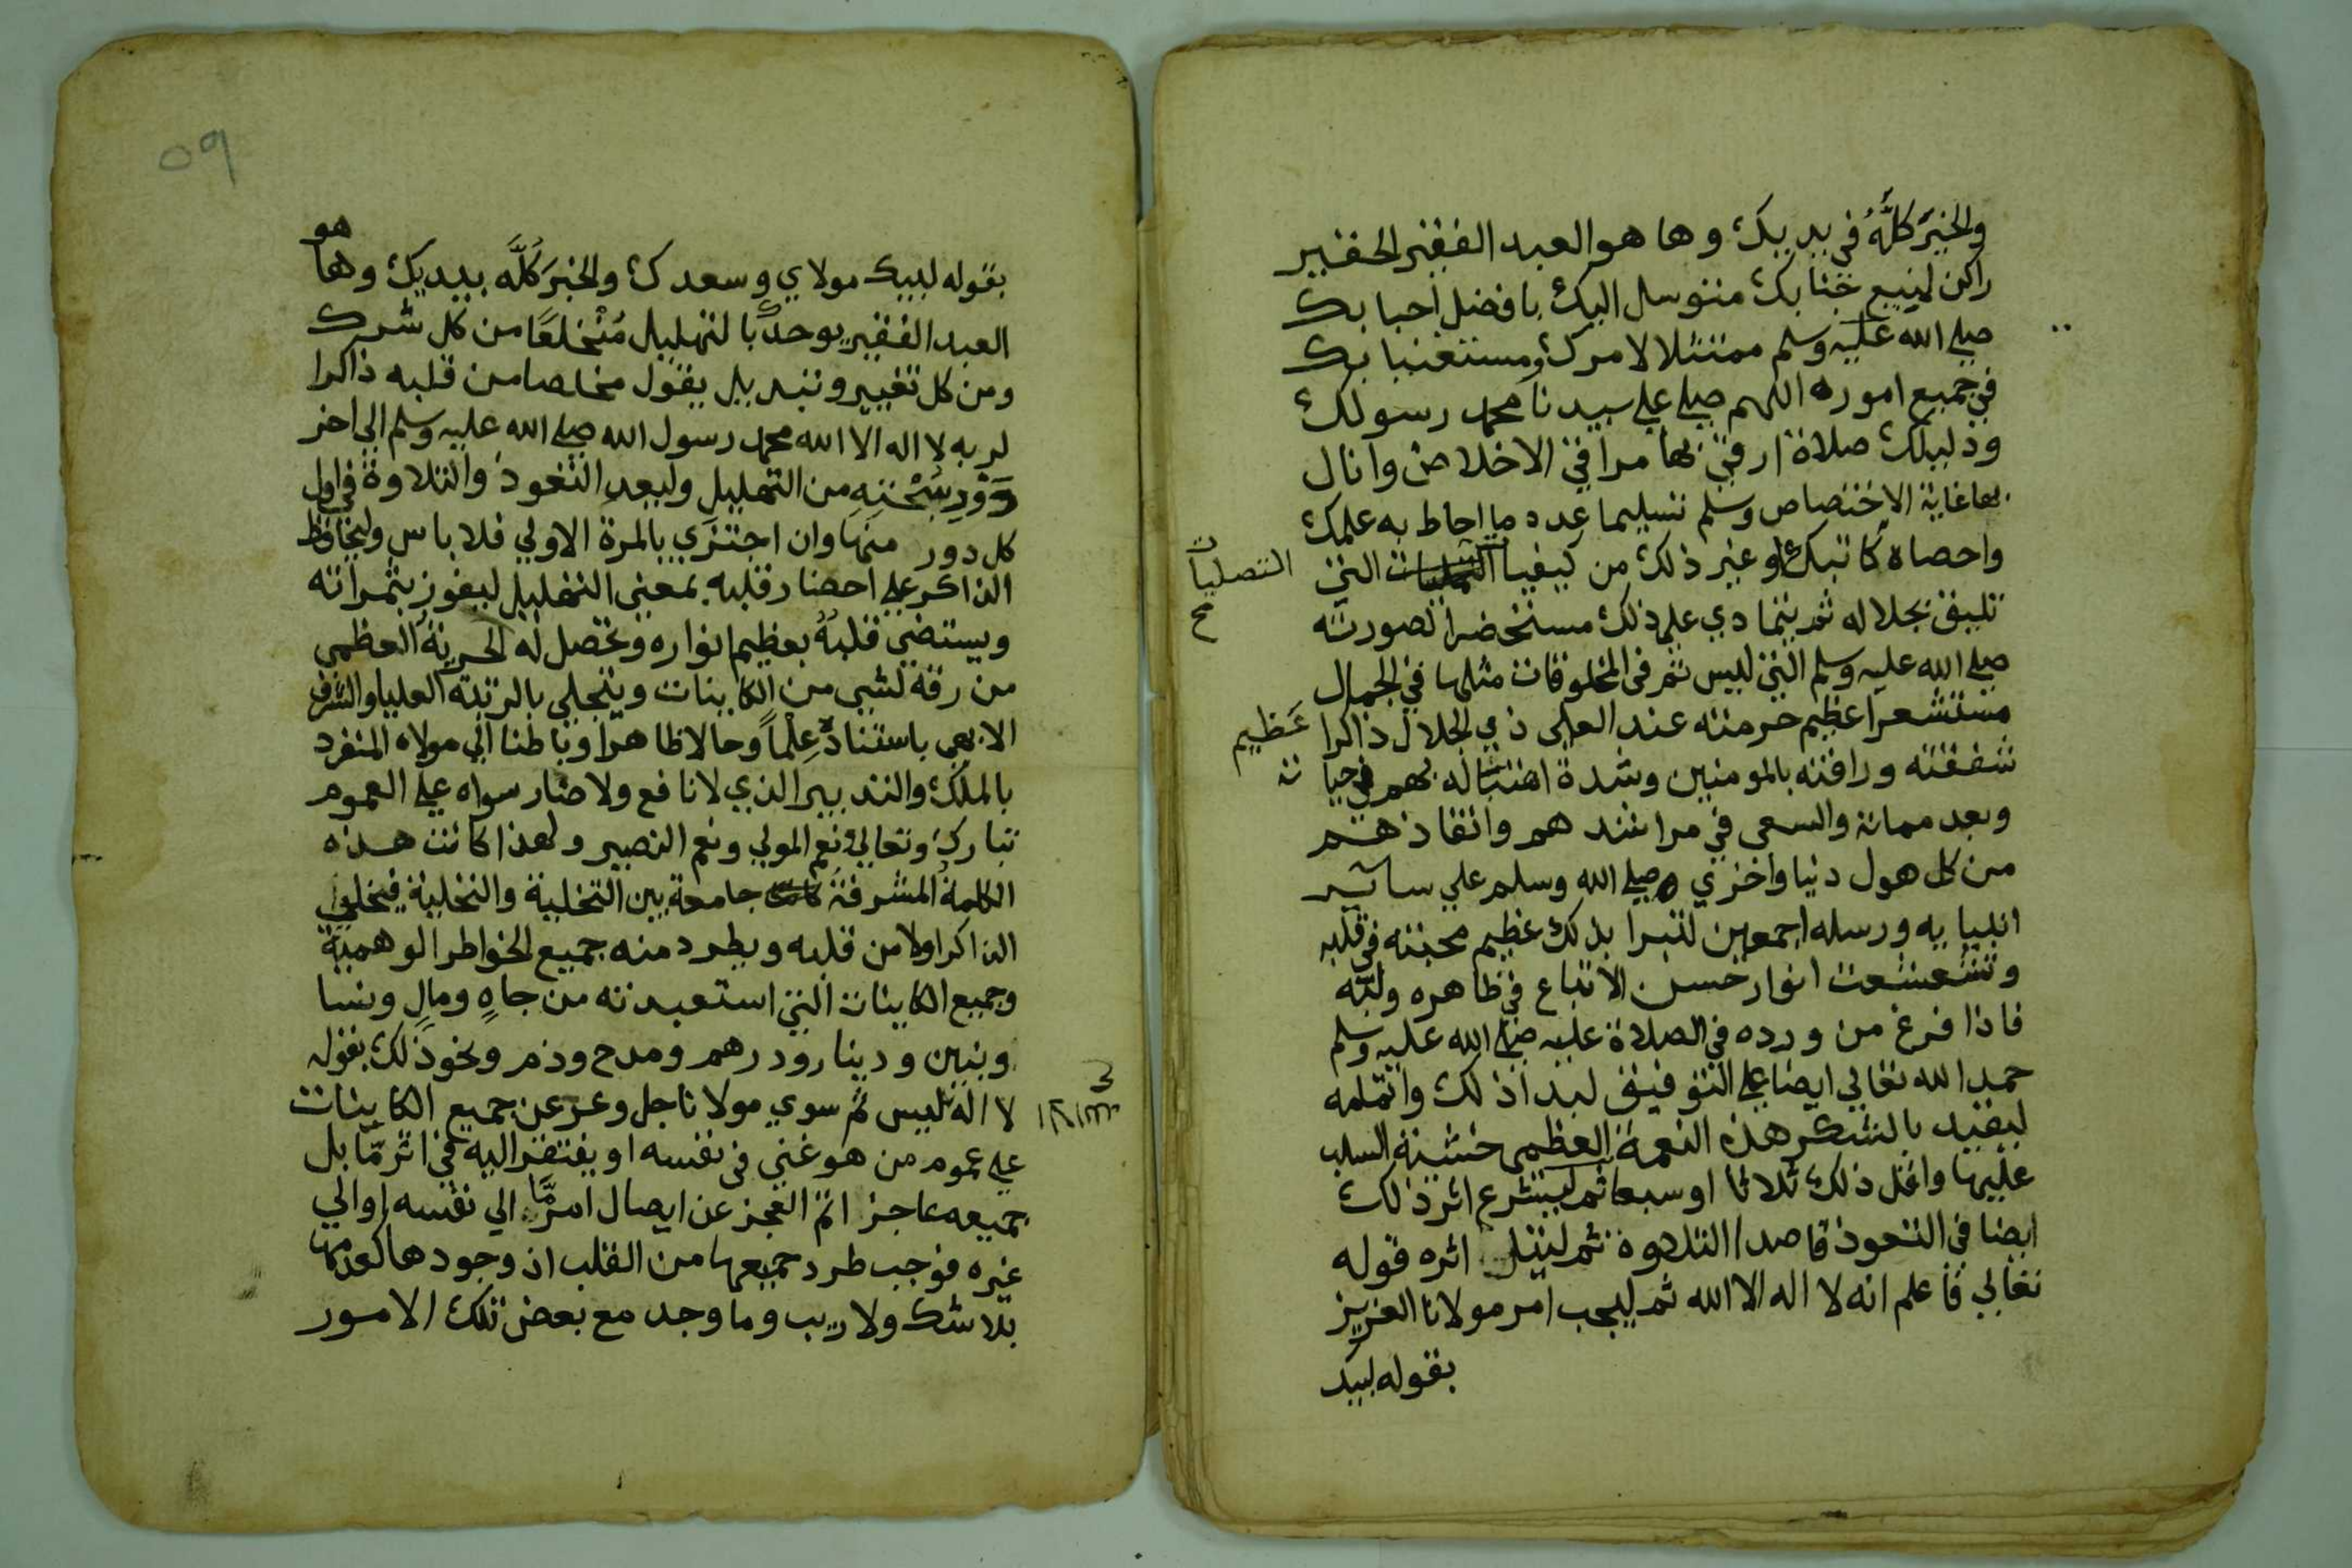 والخيرَ كلَّهُ في يديك وها هو العبد الفقير الحقير
راكن لمنيع جنابك متوسل اليك بافضل احبابك
صلي الله عليه وسلم ممتثلا لامرك ومستغيبا بك
في جميع اموره اللهم صلي علي سيدنا محمد رسولك
ودليلك صلاة ارقي بها مراقي الاخلاص وانال
بها غاية الاختصاص وسلم تسليما عدد ما احاط به علمك
واحصاه كتابك او غير ذلك من كيفيات التي
التصليات
صح
تليق بجلاله ثم يتمادي علي ذلك مستحضرا لصورته
صلي الله عليه وسلم التي ليس ثم في المخلوقات مثلها في الجمال
مستشعرا عظيم حرمته عند العلي ذي الجلال ذاكرا عَظيم
شفقته ورافته بالمومنين وشدة اهتباله بهم في حياته
وبعد مماته والسعي في مراشدهم وانقاذهم
من كل هول دنيا واخري وصلي الله وسلم علي ساير
انبيايه ورسله اجمعين لتبرا بذلك عظيم محبته في قلبه
وتشعشعت انوار حسن الاتباع في ظاهره ولبّه
فاذا فرغ من ورده في الصلاة عليه صلي الله عليه وسلم
حمد الله تعالي ايضا علي التوفيق لبدا ذلك واتمامه
ليقيد بالشكر هذه النعمة العظمي خشية السلب
عليها واقل ذلك ثلاثا او سبعا ثم ليشرع اثر ذلك
ايضا في التعوذ قاصدا التلاوة ثم ليتل اثره قوله
تعالي فاعلم انه لا اله الا الله ثم ليجب امر مولانا العزيز
بقوله لبيك
٥٩
بقوله لبيك مولاي وسعدك والخيرَ كُلَّه بيديك وها هو
العبد الفقير يوحدك بالتهليل مُنْخلعًا من كل شرك
ومن كل تغيير وتبديل يقول مخلصا من قلبه ذاكرا
لربه لا اله الا الله محمد رسول الله صلي الله عليه وسلم الي اخر
دَوْرِ سُبْحَتِهِ من التهليل وليعد التعوذ والتلاوة في اول
كل دور منها وان اجتزَي بالمرة الاولي فلا باس وليحافظ
الذاكر علي احضار قلبه بمعني التهليل ليفوز بثمراته
ويستضي قلبهُ بعظيم انواره وتحصل له الحريةُ العظمي
من رقه لشي من الكاينات ويتحلي بالرتبة العليا والشرف
الابهي باستناده عِلْماً وحالا ظاهرا وباطنا الي مولاه المنفرد
بالملك والتدبير الذي لا نافع ولا ضار سواه علي العموم
تبارك وتعالي نعم المولي ونعم النصير ولهذا كانت هذه
الكلمةُ المشرفةُ جامعة بين التخلية والتحلية فيخلي
الذاكر اولا من قلبه ويطرد منه جميع الخواطر الوهمية
وجميع الكاينات التي استعبدته من جاهٍ ومالٍ ونسا
وبنين ودينار ودرهم ومدح وذم ونحو ذلك بقوله
لا اله ليس ثم سوي مولانا جل وعز عن جميع الكاينات
علي عموم من هو غني في نفسه او يفتقر اليه في اثر مّا بل
جميعه عاجز اتم العجز عن ايصال امر مَّا الي نفسه او الي
غيره فوجب طرد جميعها من القلب اذ وجودها كعدمها
بلا شك ولا ريب وما وجد مع بعض تلك الامور